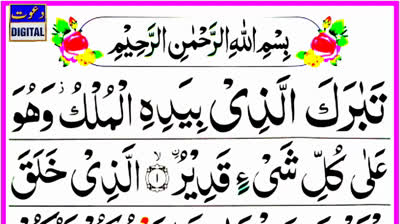 دعوت
DIGITAL
بِسْمِ اللهِ الرَّحْمٰنِ الرَّحِيْمِ
تَبٰرَكَ الَّذِىْ بِيَدِهِ الْمُلْكُ ز وَهُوَ
عَلٰى كُلِّ شَىْءٍ قَدِيْرُ ۙ ۝۱ الَّذِىْ خَلَقَ